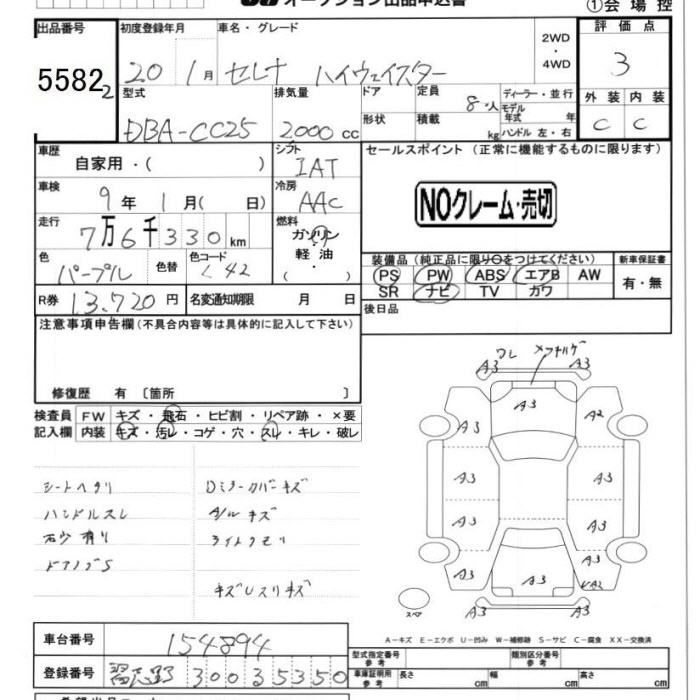 オークション出品申込書
①会場控
出品番号
5582 2
初度登録年月
20 1月
車名・グレード
セレナ ハイウェイスター
2WD・4WD
評価点
3
外装 内装
C C
型式
DBA-CC25
排気量
2000cc
ドア
形状
定員
8人
積載
kg
ディーラー・並行
モデル年式 年
ハンドル 左・右
車歴
自家用・( )
シフト
IAT
セールスポイント (正常に機能するものに限ります)
NOクレーム・売切
車検
9年 1月( 日)
冷房
AAC
走行
7万6千330km
燃料
ガソリン
軽油
( ・ )
色
パープル
色替
色コード
L42
装備品(純正品に限り○をつけてください)
PS PW ABS エアB AW
SR ナビ TV カワ
新車保証書
有・無
R券 13,720円
名変通知期限 月 日
後日品
注意事項申告欄(不具合内容等は具体的に記入して下さい)
修復歴 有 〔箇所 〕
検査員記入欄
FW キズ・飛石・ヒビ割・リペア跡・×要
内装 キズ・汚レ・コゲ・穴・スレ・キレ・破レ
シートヘタリ
ハンドルスレ
石少有り
ドアノブS
Dミラーカバーキズ
A/Wキズ
ライトクモリ
キズUスリキズ
ワレ メクレハゲ
A3 A3
A3
A3 A2
A3 A3
A3 A3
A3 A3 UA2
A3 A3
スペア
A-キズ E-エクボ U-凹み W-補修跡 S-サビ C-腐食 XX-交換済
車台番号 154894
登録番号 習志野 300 3 5350
型式指定番号 参考
類別区分番号 参考
車庫証明用 参考
長さ cm
幅 cm
高さ cm